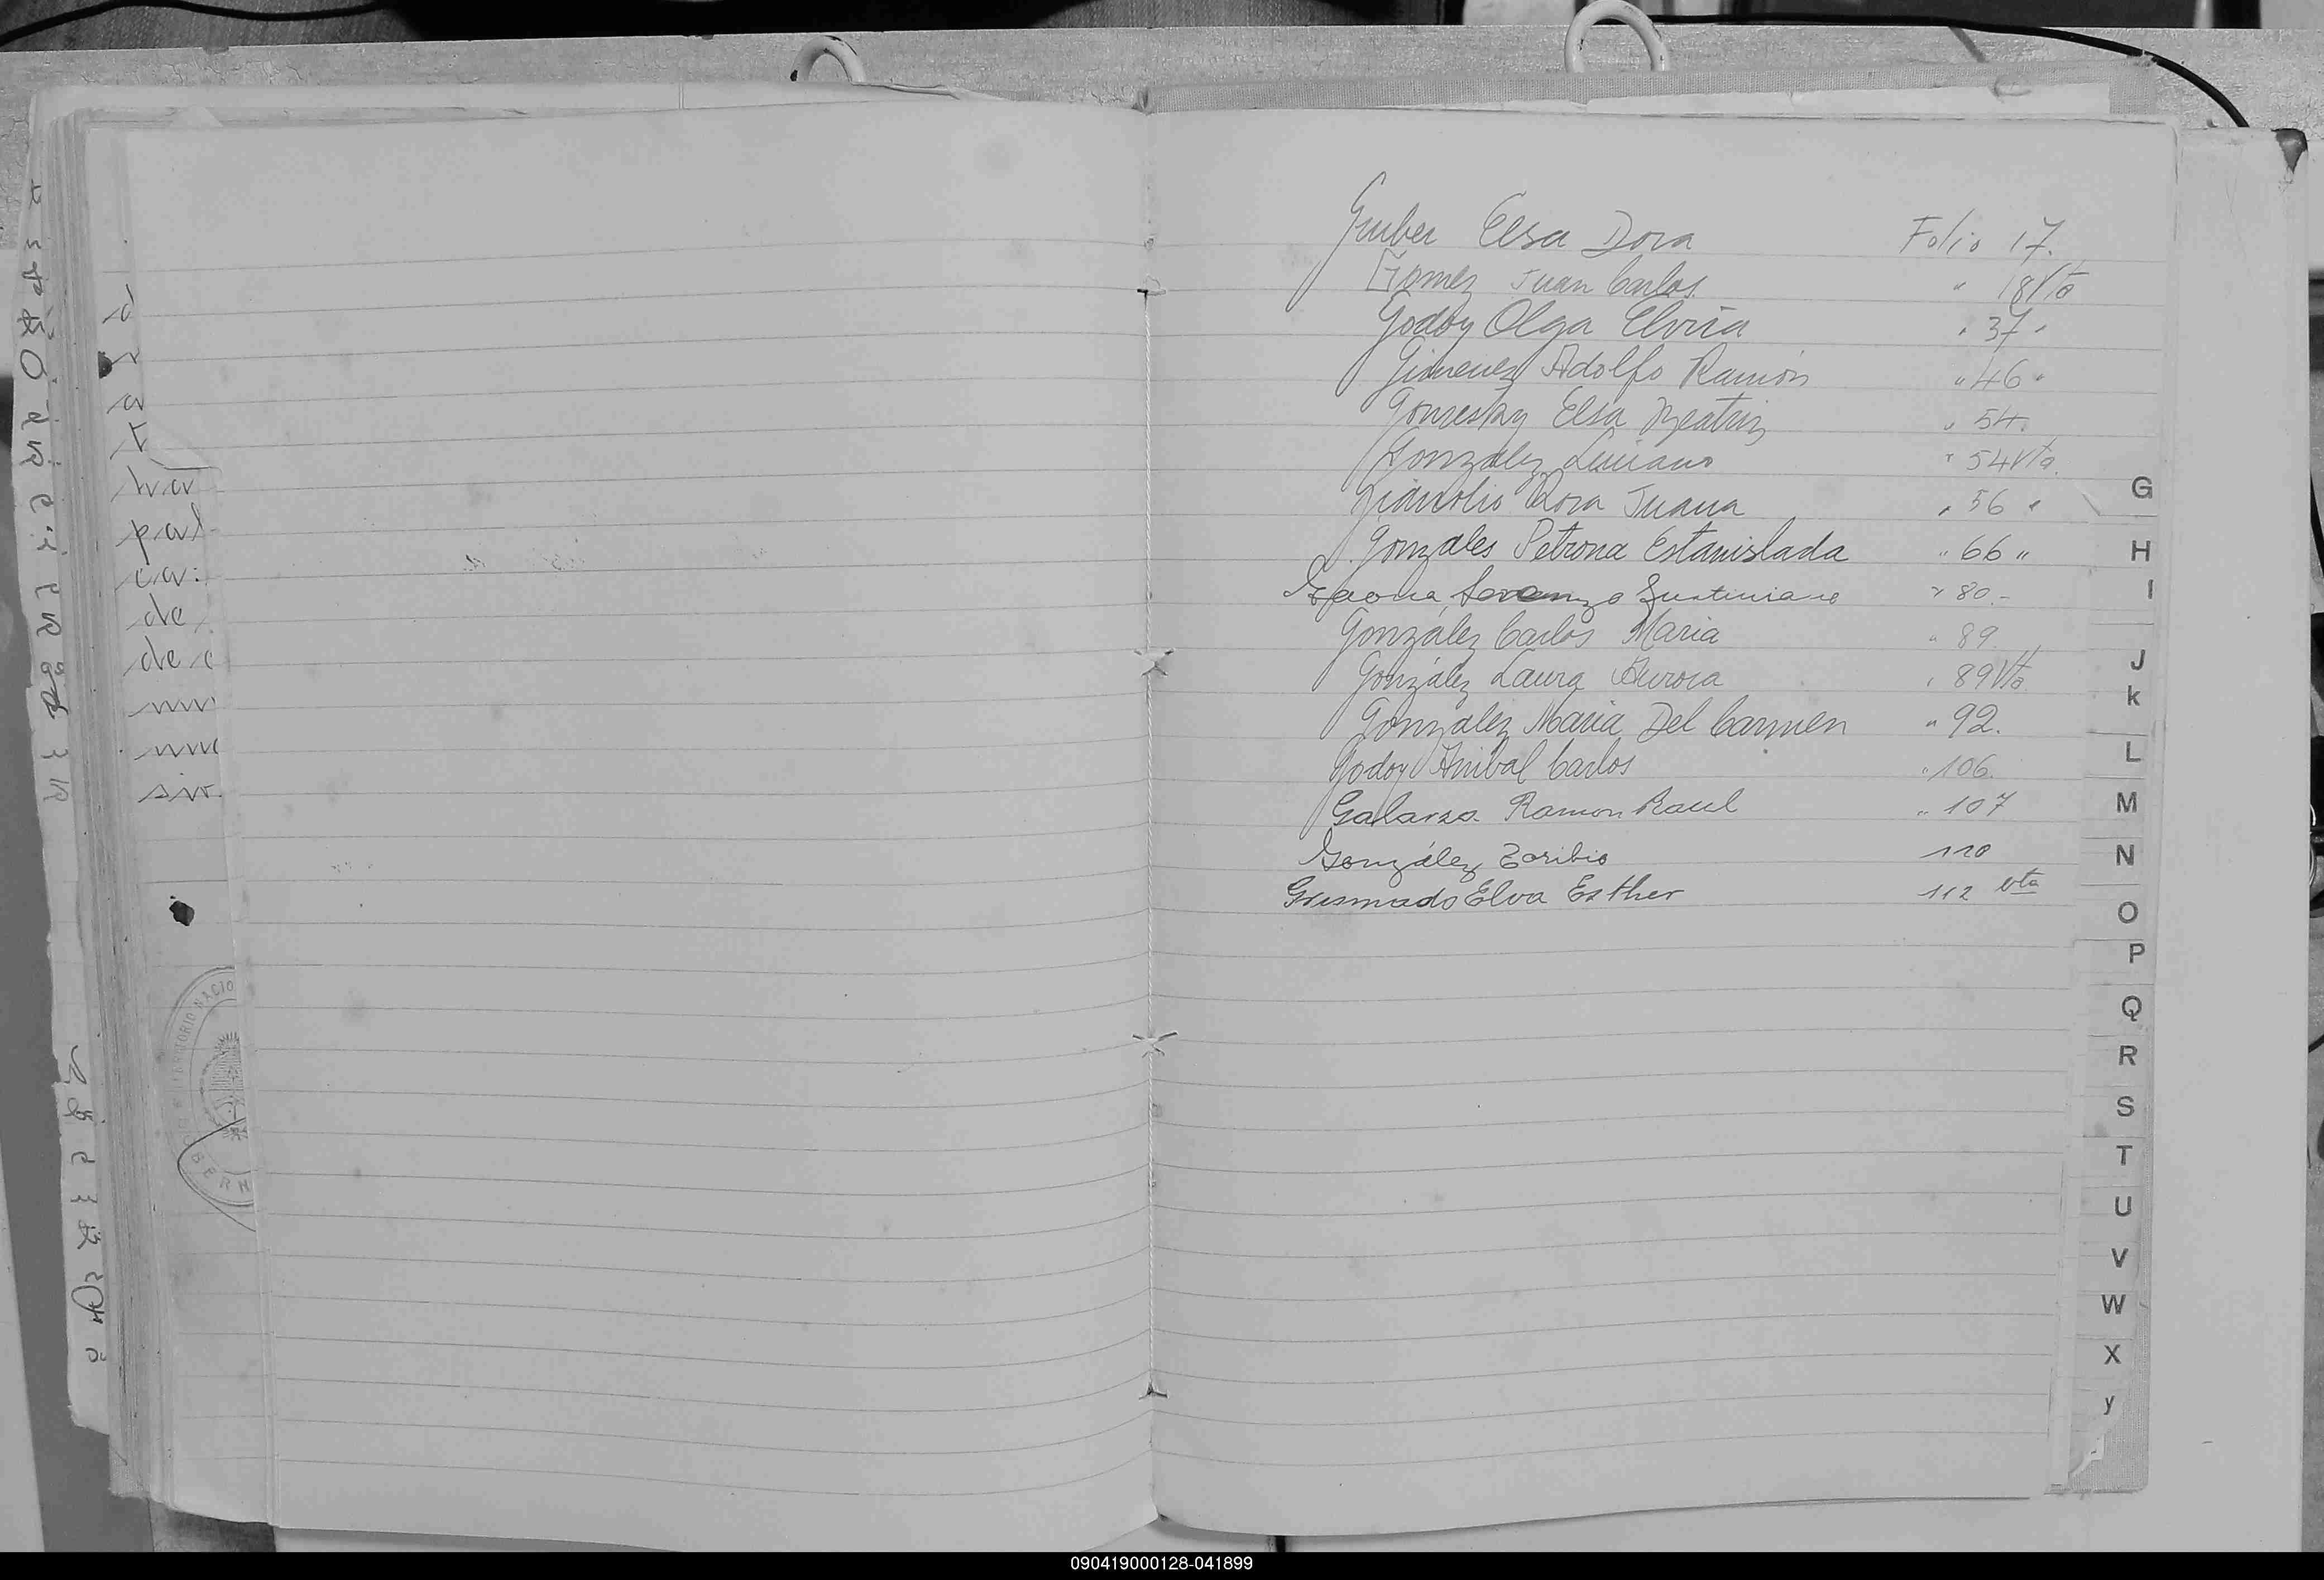 Gruber Elsa Dora Folio 17.
Gomez Juan Carlos " 18 Vto
Godoy Olga Elvira " 37 "
Gimenez Adolfo Ramón " 46 "
Elsa Beatriz " 54.
González Luciano " 54 Vta.
Dora Juana " 56 "
Gonzales Petrona Estanislada " 66 "
Gaona Lorenzo Justiniano " 80.-
González Carlos Maria " 89.
González Laura Aurora " 89 Vto
González Maria Del Carmen " 92.
Godoy Anibal Carlos " 106.
Galarza Ramon Raul " 107
González Toribio 110
Elva Esther 112 vta
G
H
I
J
k
L
M
N
O
P
Q
R
S
T
U
V
W
X
y
pal
ca:
de
de c
TERRITORIO NACIO
BERN
090419000128-041899